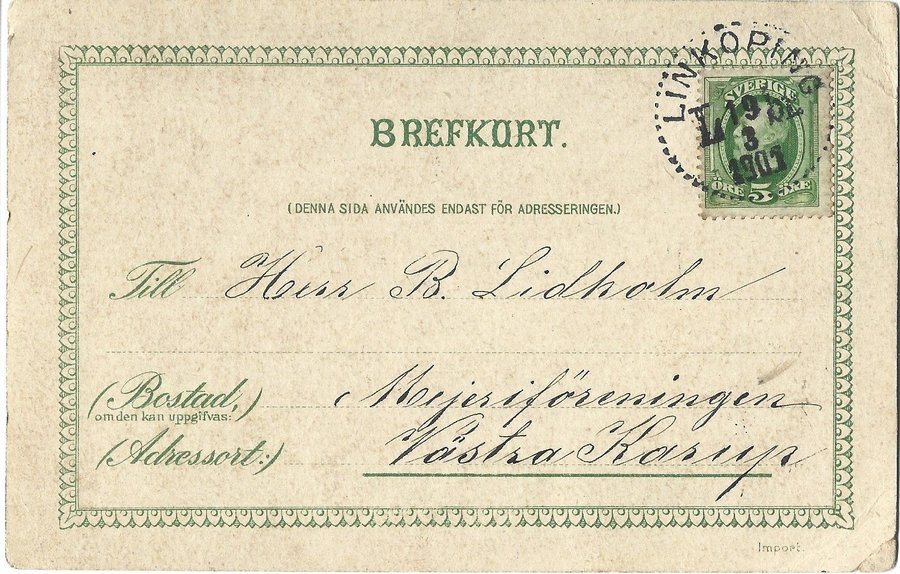 LINKÖPING
L 19
3
1903
SVERIGE
ÖRE 5 ÖRE
BREFKORT.
(DENNA SIDA ANVÄNDES ENDAST FÖR ADRESSERINGEN.)
Till Herr B. Lidholm
(Bostad,) Mejeriföreningen
om den kan uppgifvas:
(Adressort:) Västra Karup
Import.